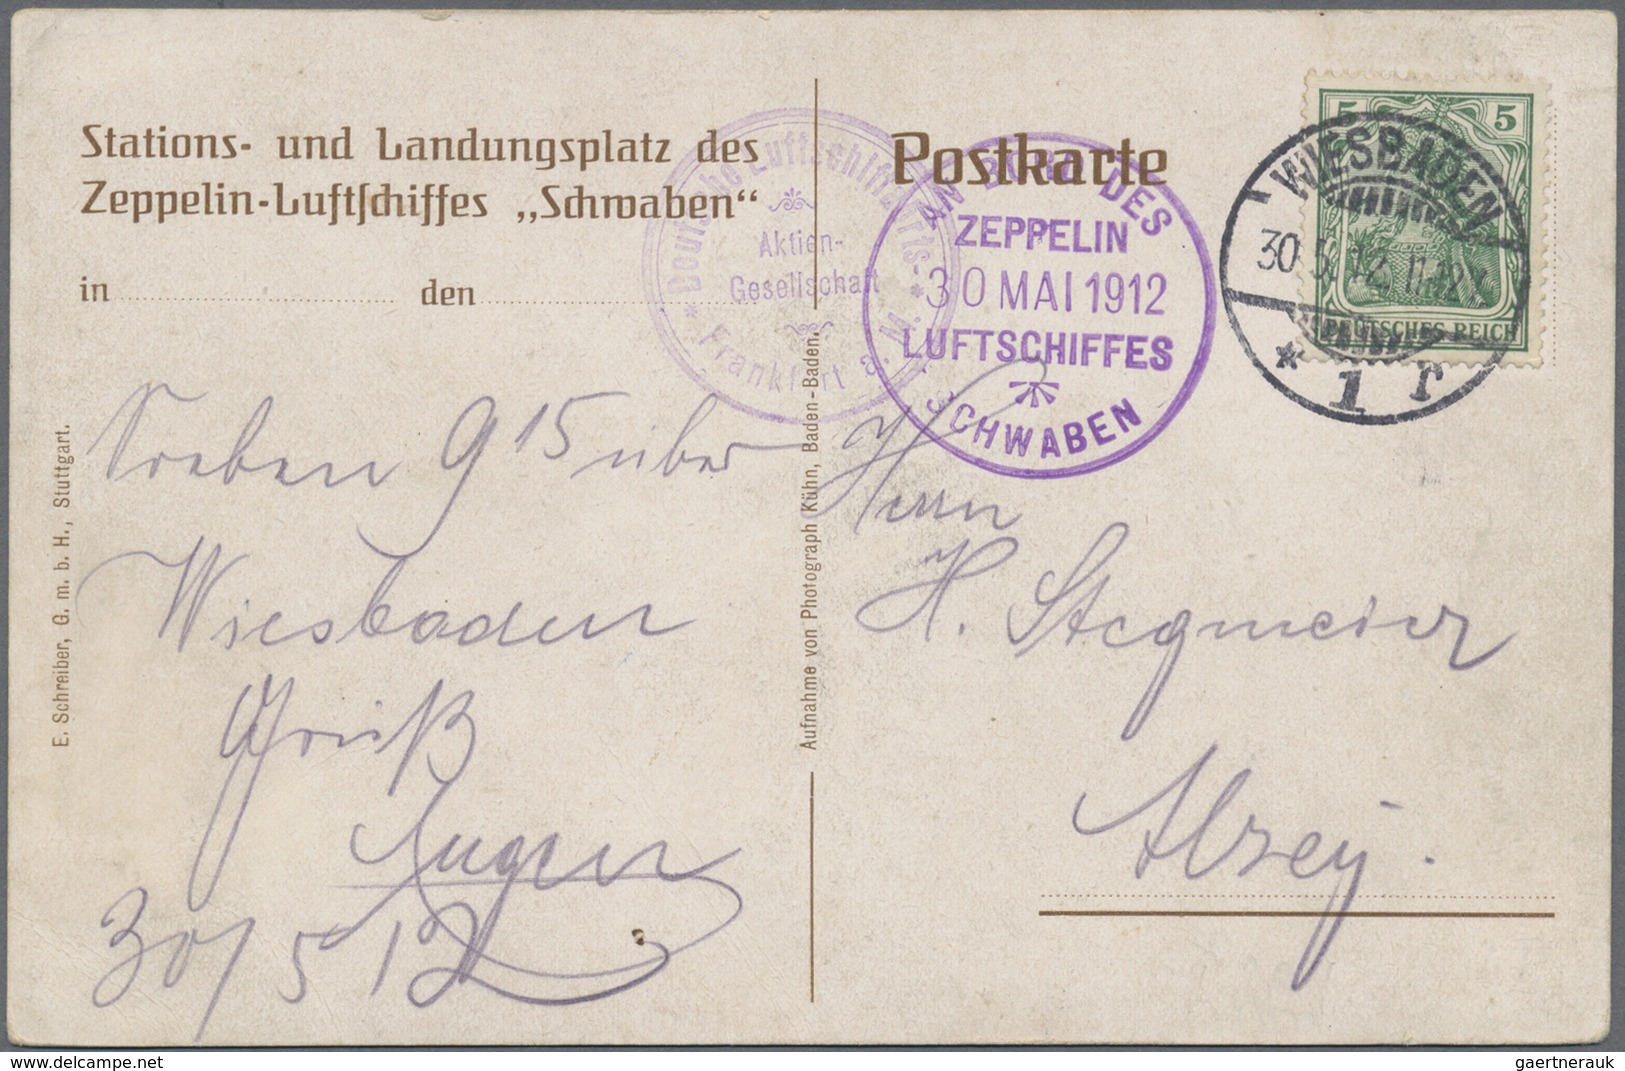 Stations- und Landungsplatz des
Zeppelin-Luftschiffes „Schwaben“
in
den
Postkarte
* Deutsche Luftschiffahrts- *
Aktien-
Gesellschaft
Frankfurt a. M.
AN BORD DES
ZEPPELIN
30 MAI 1912
LUFTSCHIFFES
SCHWABEN
5 5
DEUTSCHES REICH
WIESBADEN
30.5.12. 11-12
* 1 r
Soeben 9 15 über
Wiesbaden
Gruß
Eugen
30/5 12
Herrn
H. Stegmeier
Alzey.
E. Schreiber, G. m. b. H., Stuttgart.
Aufnahme von Photograph Kühn, Baden-Baden.
www.delcampe.net
gaertnerauk